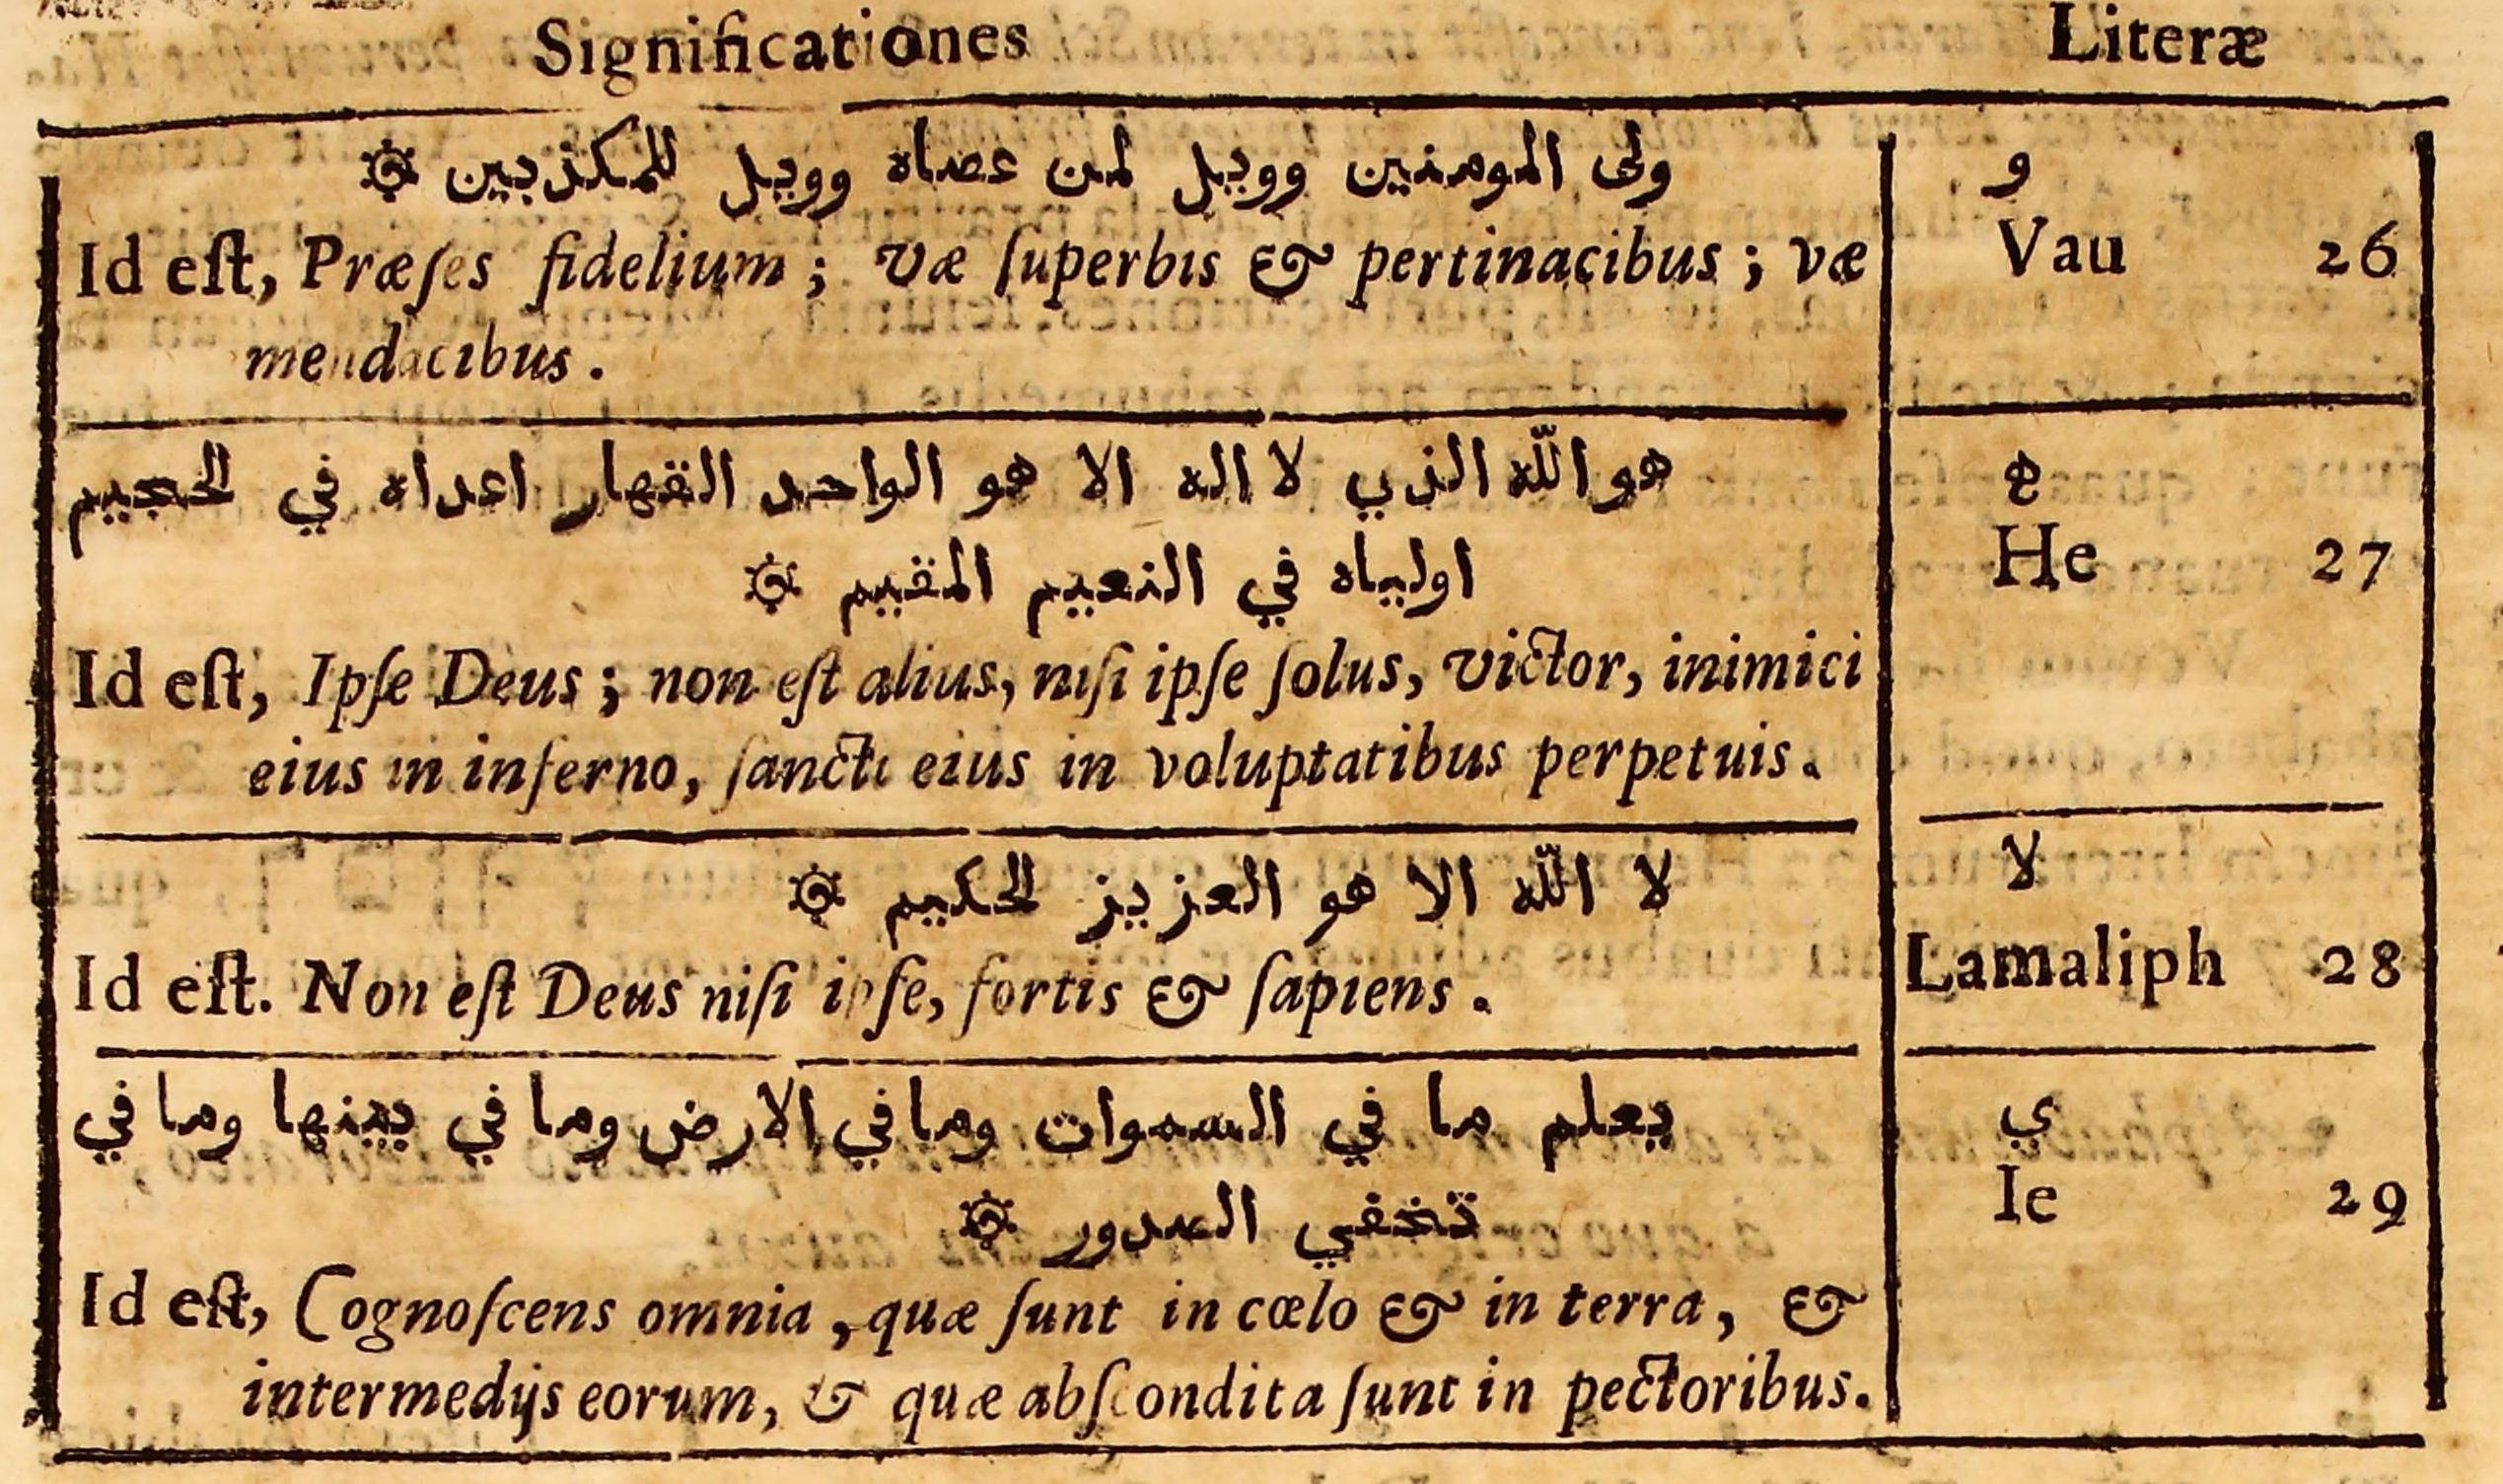 Significationes Literæ
ولى المومنين وويل لمن عصاه وويل للمكذبين
و
Id eſt, Præſes fidelium; væ ſuperbis & pertinacibus; væ
Vau 26
mendacibus.
هو اللّه الذي لا اله الا هو الواحد القهار اعداه في الحجيم
ه
اولياه في النعيم المقيم
He 27
Id eſt, Ipſe Deus; non eſt alius, niſi ipſe ſolus, victor, inimici
eius in inferno, ſancti eius in voluptatibus perpetuis.
لا اللّه الا هو العزيز الحكيم
لا
Id eſt. Non eſt Deus niſi ipſe, fortis & ſapiens.
Lamaliph 28
يعلم ما في السموات وما في الارض وما في بينها وما في
ي
تخفي الصدور
Ie 29
Id eſt, Cognoſcens omnia, quæ ſunt in cœlo & in terra, &
intermedijs eorum, & quæ abſcondita ſunt in pectoribus.